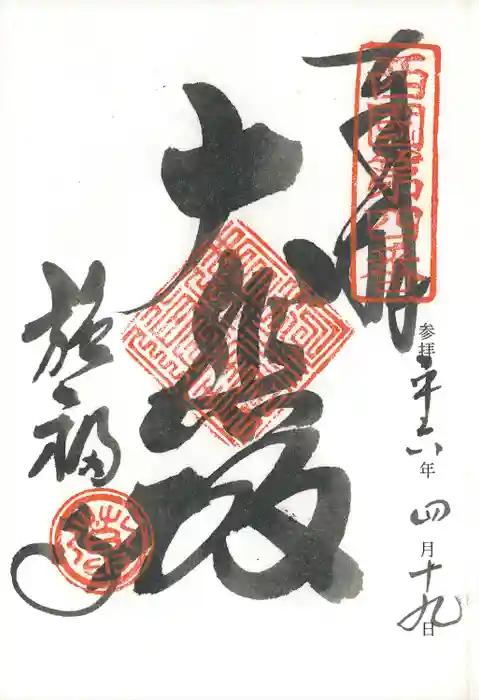 奉拝
西國第四番
参拝 平六年四月十九日
大悲殿
施福寺